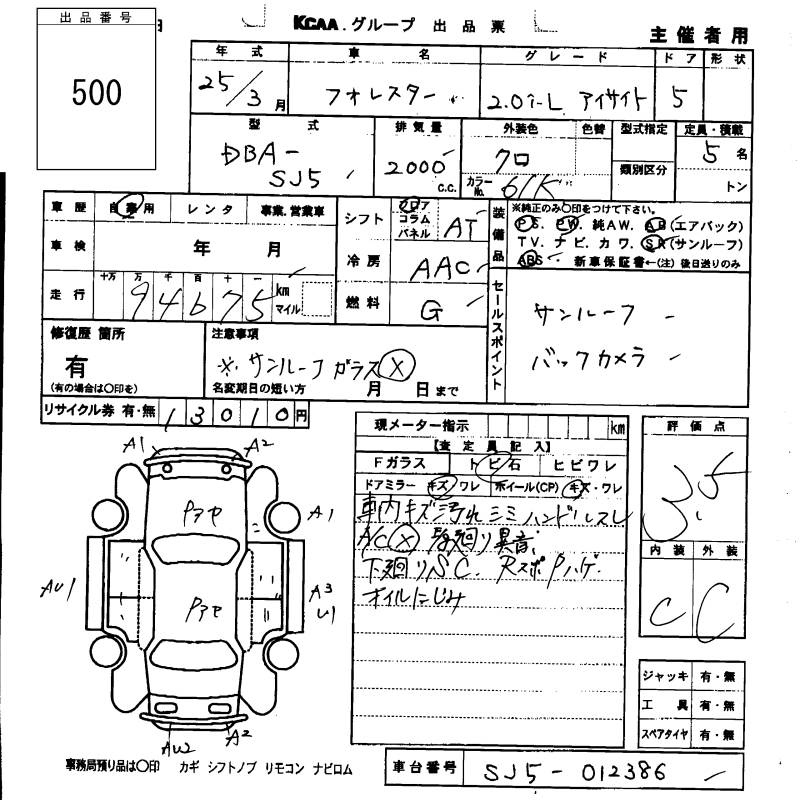 出品番号
500
KCAA.グループ 出品票
主催者用
年式 車名 グレード ドア 形状
25/3月 フォレスター 2.0i-L アイサイト 5
型式 排気量 外装色 色替 型式指定 定員・積載
DBA-SJ5 2000c.c. クロ 5名
カラーNo. 61K 類別区分 トン
車歴 自家用 レンタ 事業.営業車
シフト フロア コラム パネル AT
装備品 ※純正のみ○印をつけて下さい。
PS. PW. 純AW. AB(エアバック)
TV. ナビ. カワ. SR(サンルーフ)
ABS 新車保証書←(注)後日送りのみ
車検 年 月
冷房 AAC
走行 十万 万 千 百 十 一
94675 km マイル
燃料 G
セールスポイント
サンルーフ
バックカメラ
修復歴 箇所
有
(有の場合は○印を)
注意事項
※.サンルーフガラスX
名変期日の短い方 月 日まで
リサイクル券 有・無 13010円
現メーター指示 km
【査定員記入】
Fガラス トビ石 ヒビワレ
ドアミラー キズ ワレ ホイール(CP) キズ・ワレ
車内キズ汚れシミハンドルスレ
AC X 異音.
下廻りSC. RスポPハゲ.
オイルにじみ
評価点
3.5
内装 外装
C C
A1 A2
Pアセ
A1
AU1
A3
U1
Pアセ
AU2 A2
ジャッキ 有・無
工具 有・無
スペアタイヤ 有・無
事務局預り品は○印 カギ シフトノブ リモコン ナビロム
車台番号 SJ5-012386